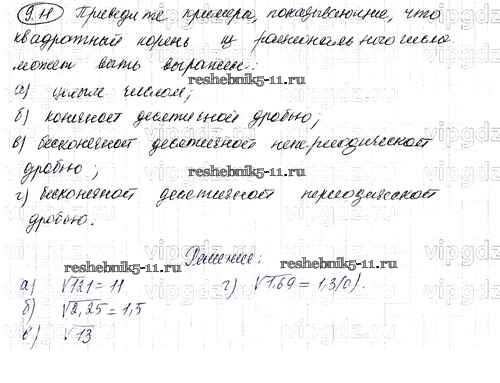 9.11 Приведите примеры, показывающие, что
квадратный корень из рационального числа
может быть выражен:
reshebnik5-11.ru
а) целым числом;
б) конечной десятичной дробью;
в) бесконечной десятичной непериодической
дробью;
reshebnik5-11.ru
г) бесконечной десятичной периодической
дробью.
Решение:
reshebnik5-11.ru
а) √121 = 11 г) √1,69 = 1,3(0).
б) √2,25 = 1,5
reshebnik5-11.ru
в) √13